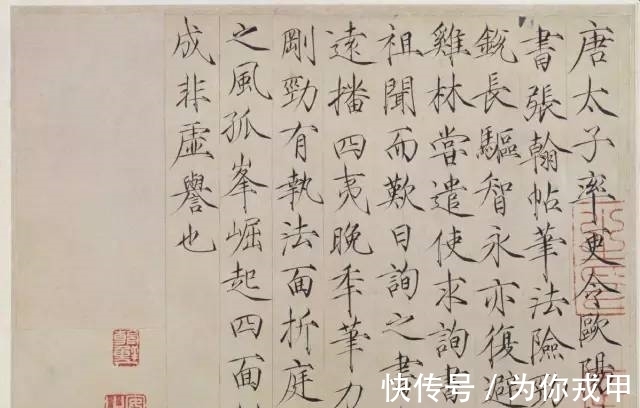 唐太子率更令歐陽
書張翰帖筆法險勁
銳長驅智永亦復避
雞林嘗遣使求詢書
祖聞而歎曰詢之書
遠播四夷晚年筆力
剛勁有執法面折庭
之風孤峯崛起四面
成非虛譽也
快传号/为你戎甲